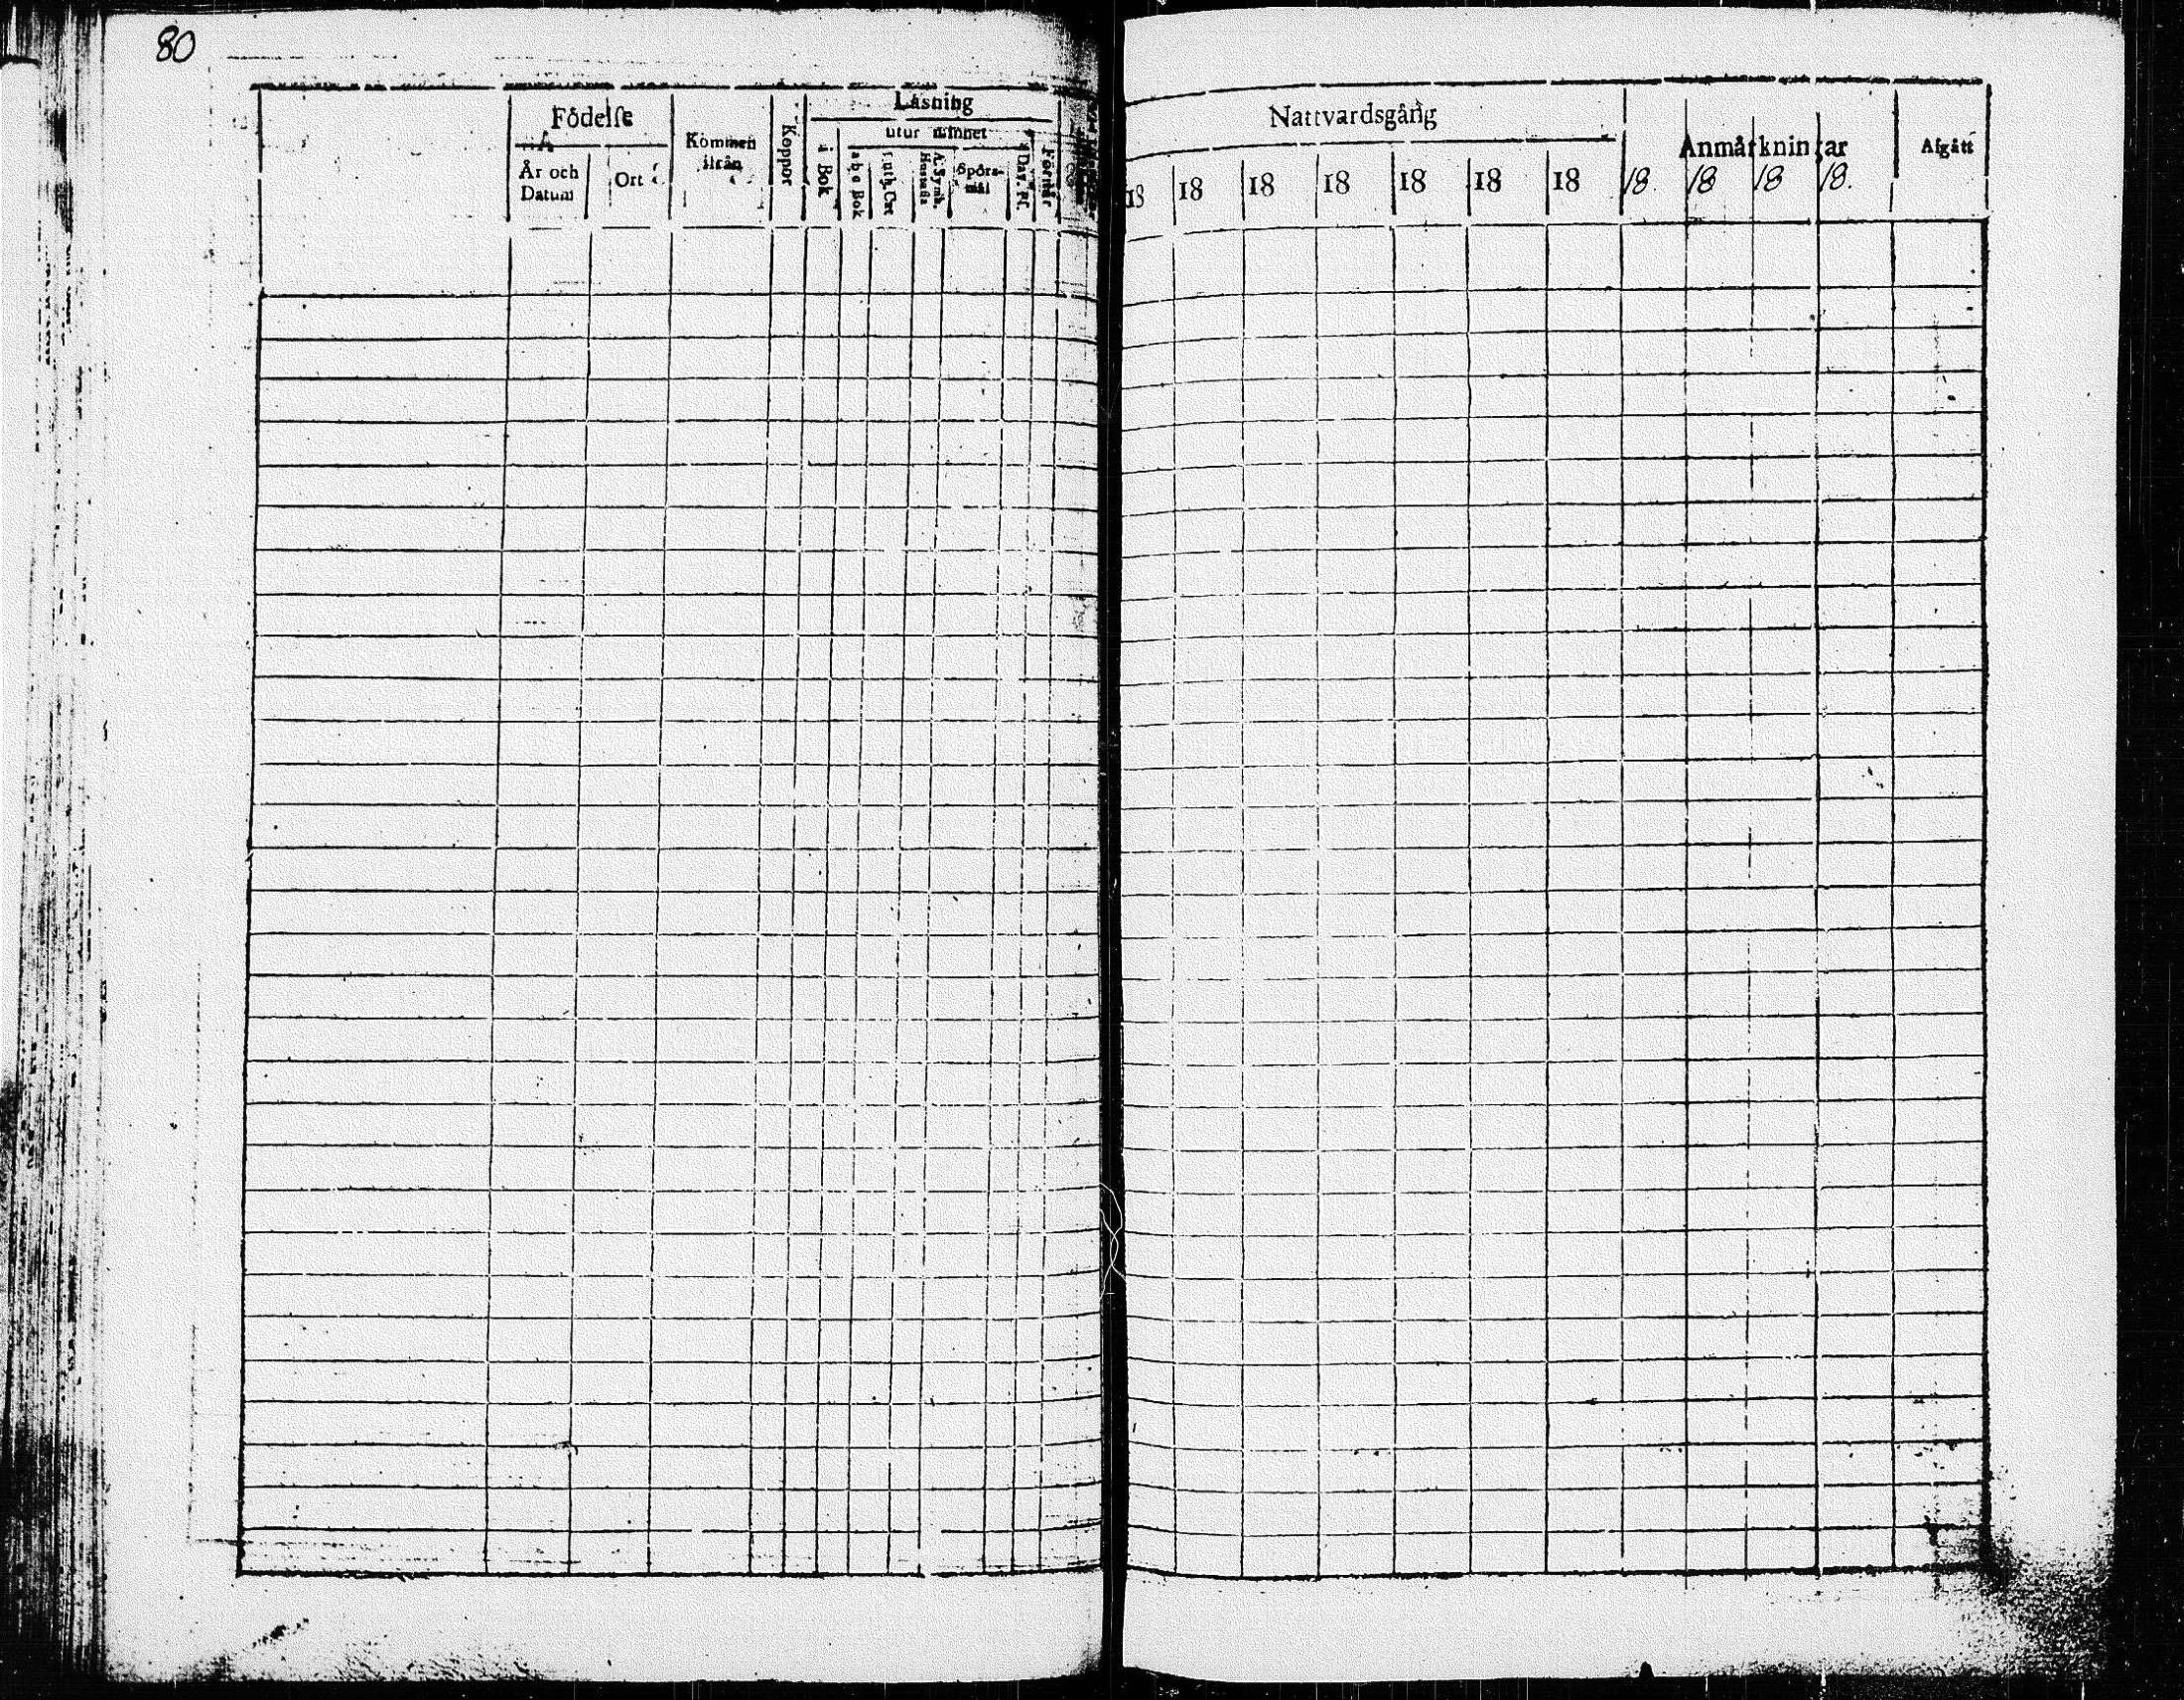 80
Födelse
År och Datum
Ort
Kommen ifrån
Koppor
Läsning
utur minnet
i Bok
a b c Bok
Luth. Cat
A. Symb. Hustafla
Spörsmål
Dav. Ps.
Förstår
Nattvardsgång
18 18 18 18 18 18 18
Anmärkningar
18. 18 18 18.
Afgått